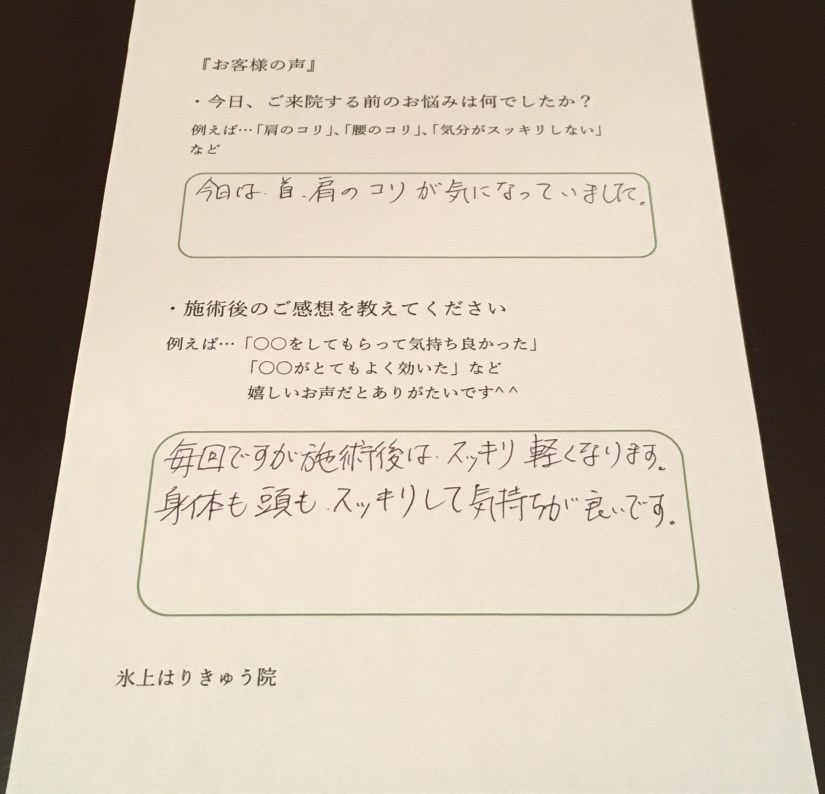 『お客様の声』
・今日、ご来院する前のお悩みは何でしたか？
例えば…「肩のコリ」、「腰のコリ」、「気分がスッキリしない」
など
今日は、首、肩のコリが気になっていました。
・施術後のご感想を教えてください
例えば…「〇〇をしてもらって気持ち良かった」
「〇〇がとてもよく効いた」など
嬉しいお声だとありがたいです^ ^
毎回ですが施術後は、スッキリ軽くなります。
身体も頭も、スッキリして気持ちが良いです。
氷上はりきゅう院